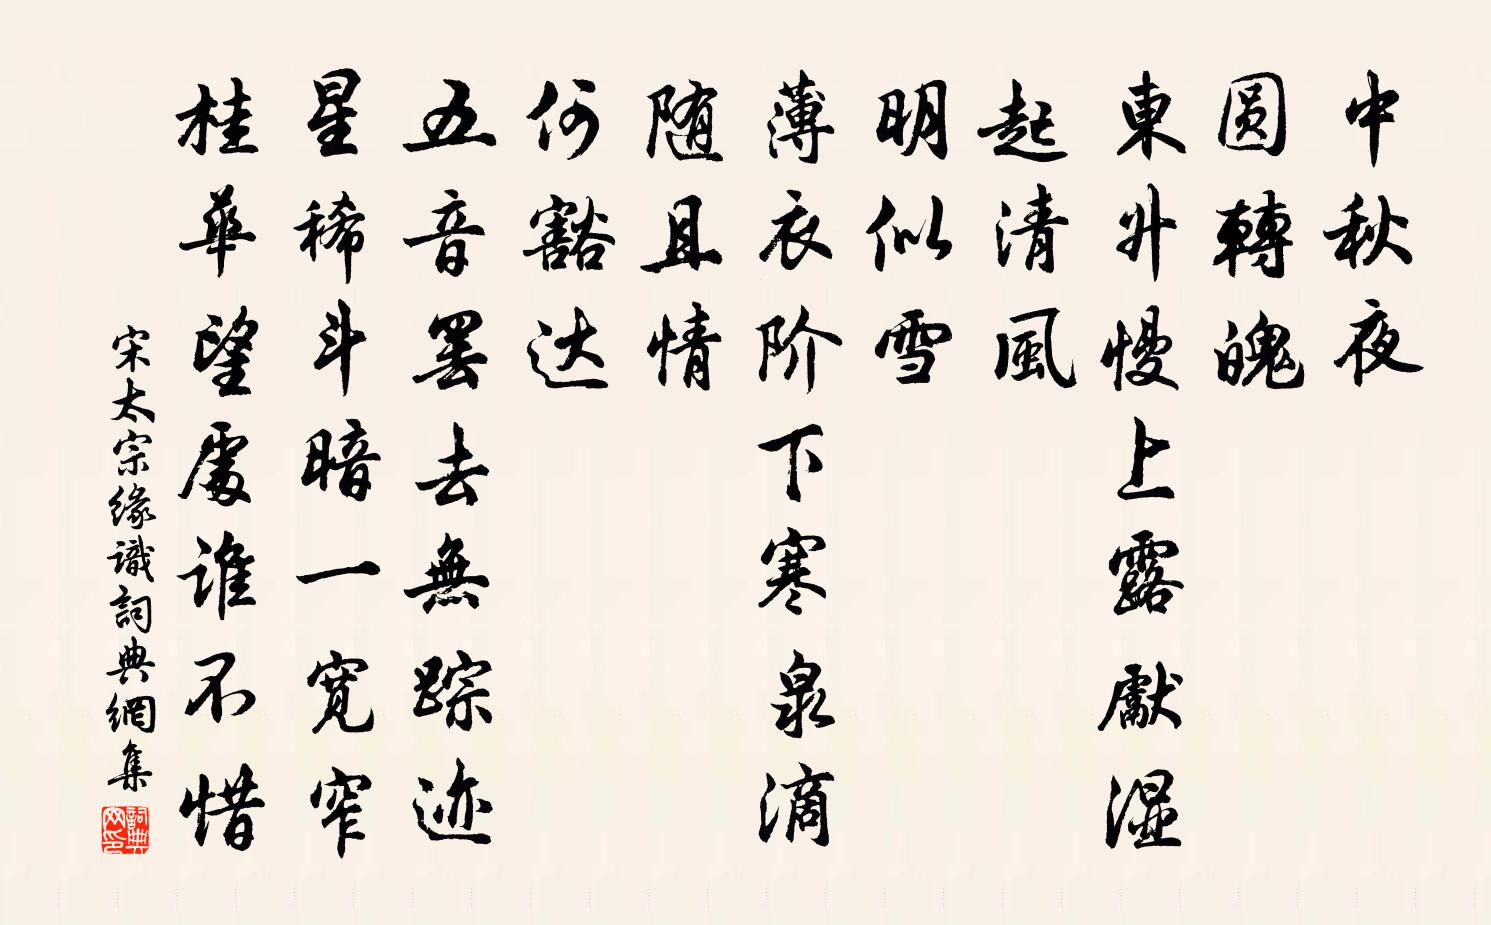 中秋夜
圆轉魄
東升慢上露獻濕
起清風
明似雪
薄衣阶下寒泉滴
随且情
何豁达
五音罢去無踪迹
星稀斗暗一宽窄
桂華望處谁不惜
宋太宗緣識詞典網集
詞典網印